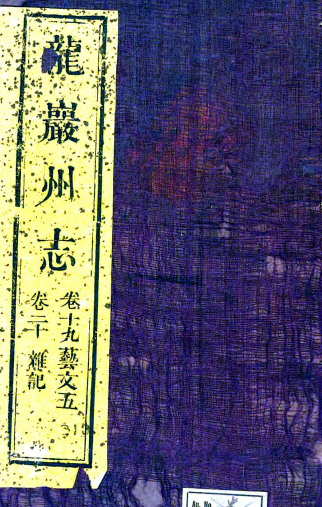 龍巖州志
卷十九藝文五
卷二十 雜記
Au. No.